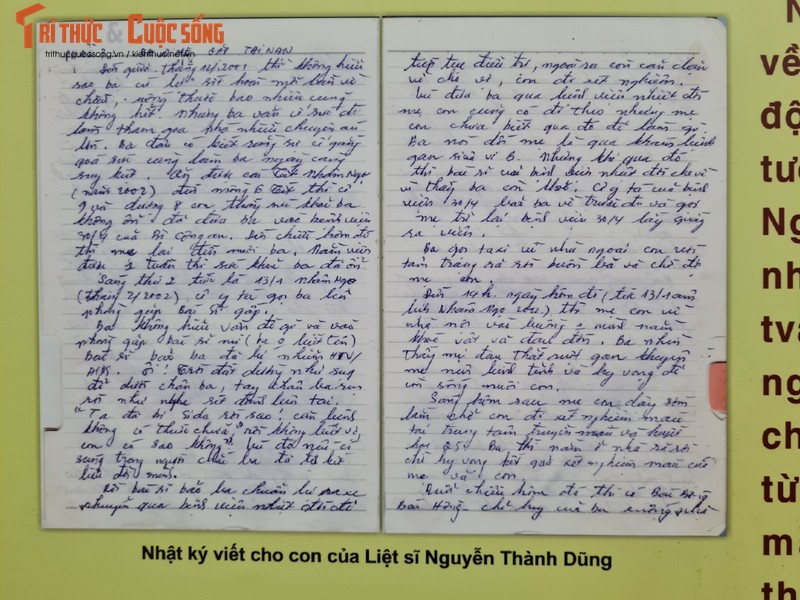 TRI THỨC & CUỘC SỐNG
trithuccuocsong.vn / kienthuc.net.vn
GẶP TAI NẠN
Đến giữa tháng 12/2001 thì không hiểu
sao ba cứ
chiều, uống thuốc bao nhiêu cũng
không hết. Nhưng ba vẫn cố sức đi
làm tham gia phá nhiều chuyên án
lớn. Ba đâu có biết rằng sự cố gắng
quá sức càng làm ba ngày càng
suy kiệt. Tết Nhâm Ngọ
(năm 2002) đến mồng 6 Tết thì cô
9 và dượng 8 con thấy sức khoẻ ba
không ổn đã đưa ba vào bệnh viện
30/4 của Bộ Công an. Đến chiều hôm đó
thì mẹ lại đến nuôi ba. Nằm viện
được 1 tuần thì sức khoẻ ba đã ổn
Sang thứ 2 tức là 13/1 Nhâm Ngọ
(tháng 2/2002) cô y tá gọi ba lên
phòng gặp Bác sĩ gấp.
Ba không hiểu vấn đề gì và vào
phòng gặp bác sĩ
bác sĩ bảo ba đã bị nhiễm HIV/
AIDS. Ô! Trời đất dường như sụp
đổ dưới chân ba, tay chân ba run
rồi như nghe sét đánh bên tai.
"Ta đã bị Sida rồi sao! căn bệnh
không có thuốc chữa, rồi không biết vợ,
con có sao không". Lúc đó nếu có
súng trong người chắc ba đã tự kết
liễu đời mình.
Rồi bác sĩ bảo ba chuẩn bị ra xe
chuyển qua bệnh viện nhiệt đới để
tiếp tục điều trị, ngoài ra còn căn dặn
về chở vợ, con đi xét nghiệm.
Lúc đưa ba qua bệnh viện nhiệt đới
mẹ con cũng có đi theo nhưng mẹ
con chưa biết qua đó để làm gì
Ba nói dối mẹ là qua khám bệnh
gan siêu vi B. Nhưng khi qua đó
thì bác sĩ của bệnh viện nhiệt đới cho về
vì thấy ba còn khoẻ. Cô y tá của bệnh
viện 30/4 bảo ba về trước đi và gọi
mẹ trở lại bệnh viện 30/4 lấy giấy
ra viện.
Ba gọi taxi về nhà ngoại con với
tâm trạng rã rời buồn bã và chờ đợi
mẹ con.
Đến 19h ngày hôm đó (tức 13/1 âm
lịch Nhâm Ngọ 2002) thì mẹ con về
nhà
và đau đớn. Ba nhìn
thấy mẹ đau thắt ruột gan khuyên
mẹ nên bình tĩnh và hy vọng để
còn sống nuôi con.
Sáng hôm sau mẹ con dậy sớm
chở con đi xét nghiệm máu
tại trung tâm truyền máu và huyết
học Q5. Ba thì nằm ở nhà rã rời
chỉ hy vọng kết quả xét nghiệm máu của
mẹ và con.
chiều hôm đó thì có Bác
chỉ huy của ba xuống
Nhật ký viết cho con của Liệt sĩ Nguyễn Thành Dũng
N
về
độ
Ng
nh
ng
ch
từ
m
th